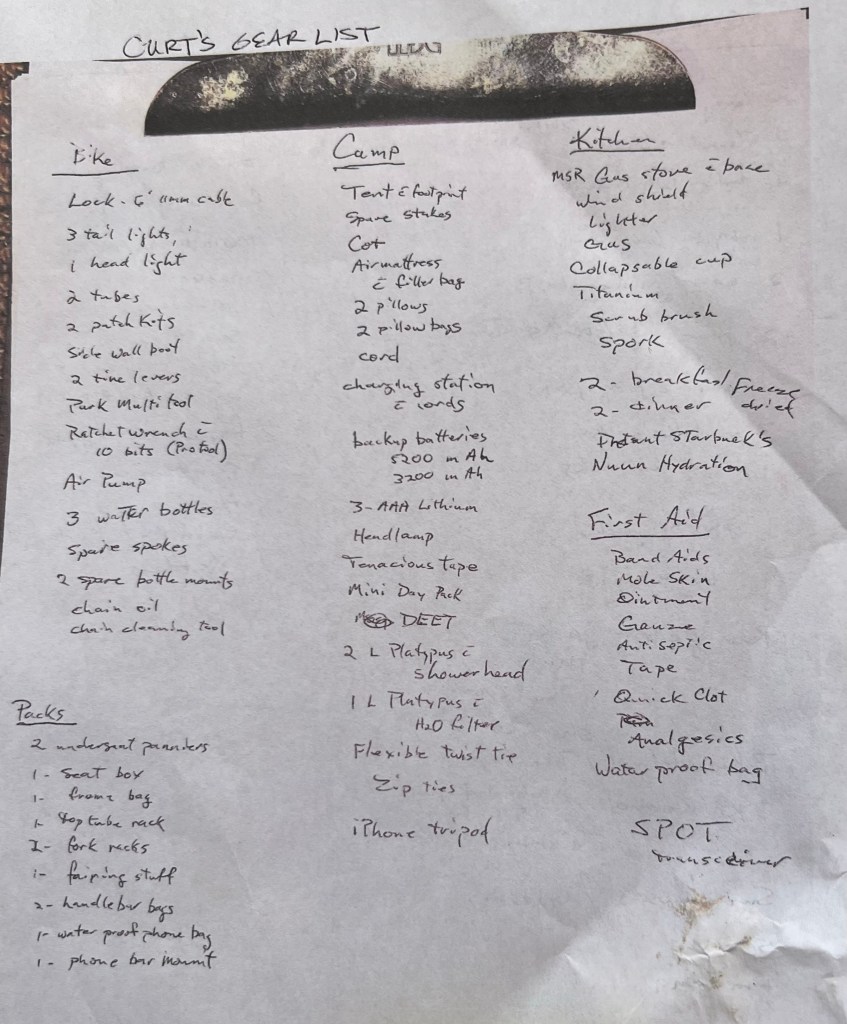 CURT'S GEAR LIST
Bike
Lock - 6' 11mm cable
3 tail lights,
1 head light
2 tubes
2 patch kits
Side wall boot
2 tire levers
Park Multi tool
Ratchet wrench c̄
10 bits (Pro tool)
Air Pump
3 watter bottles
Spare spokes
2 spare bottle mounts
chain oil
chain cleaning tool
Packs
2 underseat panniers
1- Seat box
1- frame bag
1- top tube rack
2- fork racks
1- fairing stuff
2- handlebar bags
1- water proof phone bag
1- phone bar mount
Camp
Tent c̄ footprint
Spare stakes
Cot
Airmattress
c̄ filler bag
2 pillows
2 pillow bags
cord
charging station
c̄ cords
backup batteries
5200 mAh
3200 mAh
3- AAA Lithium
Headlamp
Tenacious tape
Mini Day Pack
DEET
2 L Platypus c̄
shower head
1 L Platypus c̄
H2O filter
Flexible twist tie
Zip ties
iPhone tripod
Kitchen
MSR Gas stove c̄ base
wind shield
Lighter
Gas
Collapsable cup
Titanium
Scrub brush
Spork
2- breakfast Freeze
2- dinner dried
Instant Starbuck's
Nuun Hydration
First Aid
Band Aids
Mole Skin
Ointment
Gauze
Antiseptic
Tape
Quick Clot
Analgesics
Water proof bag
SPOT
transceiver